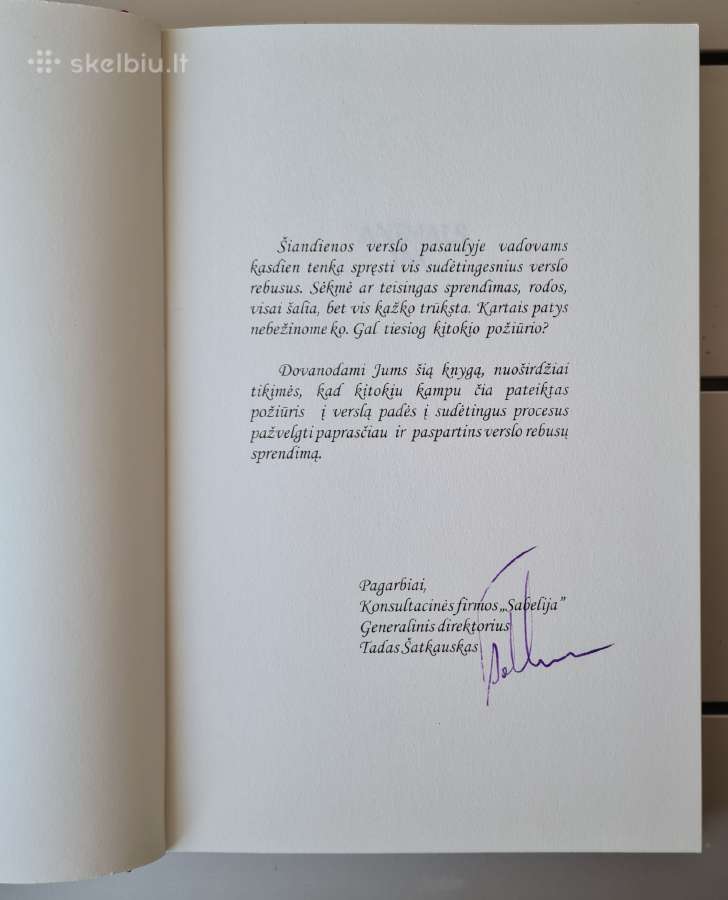 skelbiu.lt
Šiandienos verslo pasaulyje vadovams
kasdien tenka spręsti vis sudėtingesnius verslo
rebusus. Sėkmė ar teisingas sprendimas, rodos,
visai šalia, bet vis kažko trūksta. Kartais patys
nebežinome ko. Gal tiesiog kitokio požiūrio?
Dovanodami Jums šią knygą, nuoširdžiai
tikimės, kad kitokiu kampu čia pateiktas
požiūris į verslą padės į sudėtingus procesus
pažvelgti paprasčiau ir paspartins verslo rebusų
sprendimą.
Pagarbiai,
Konsultacinės firmos „Sabelija”
Generalinis direktorius
Tadas Šatkauskas